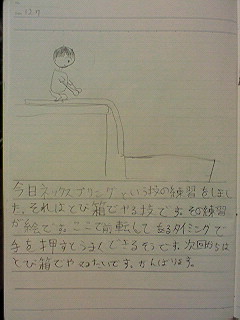 今日ネックスプリングという技の練習をしまし
た。それはとび箱でやる技です。その練習
が絵です。ここで前転して あるタイミングで
手を押すとうまくできるそうです。次回からは
とび箱でやるみたいです。がんばります。